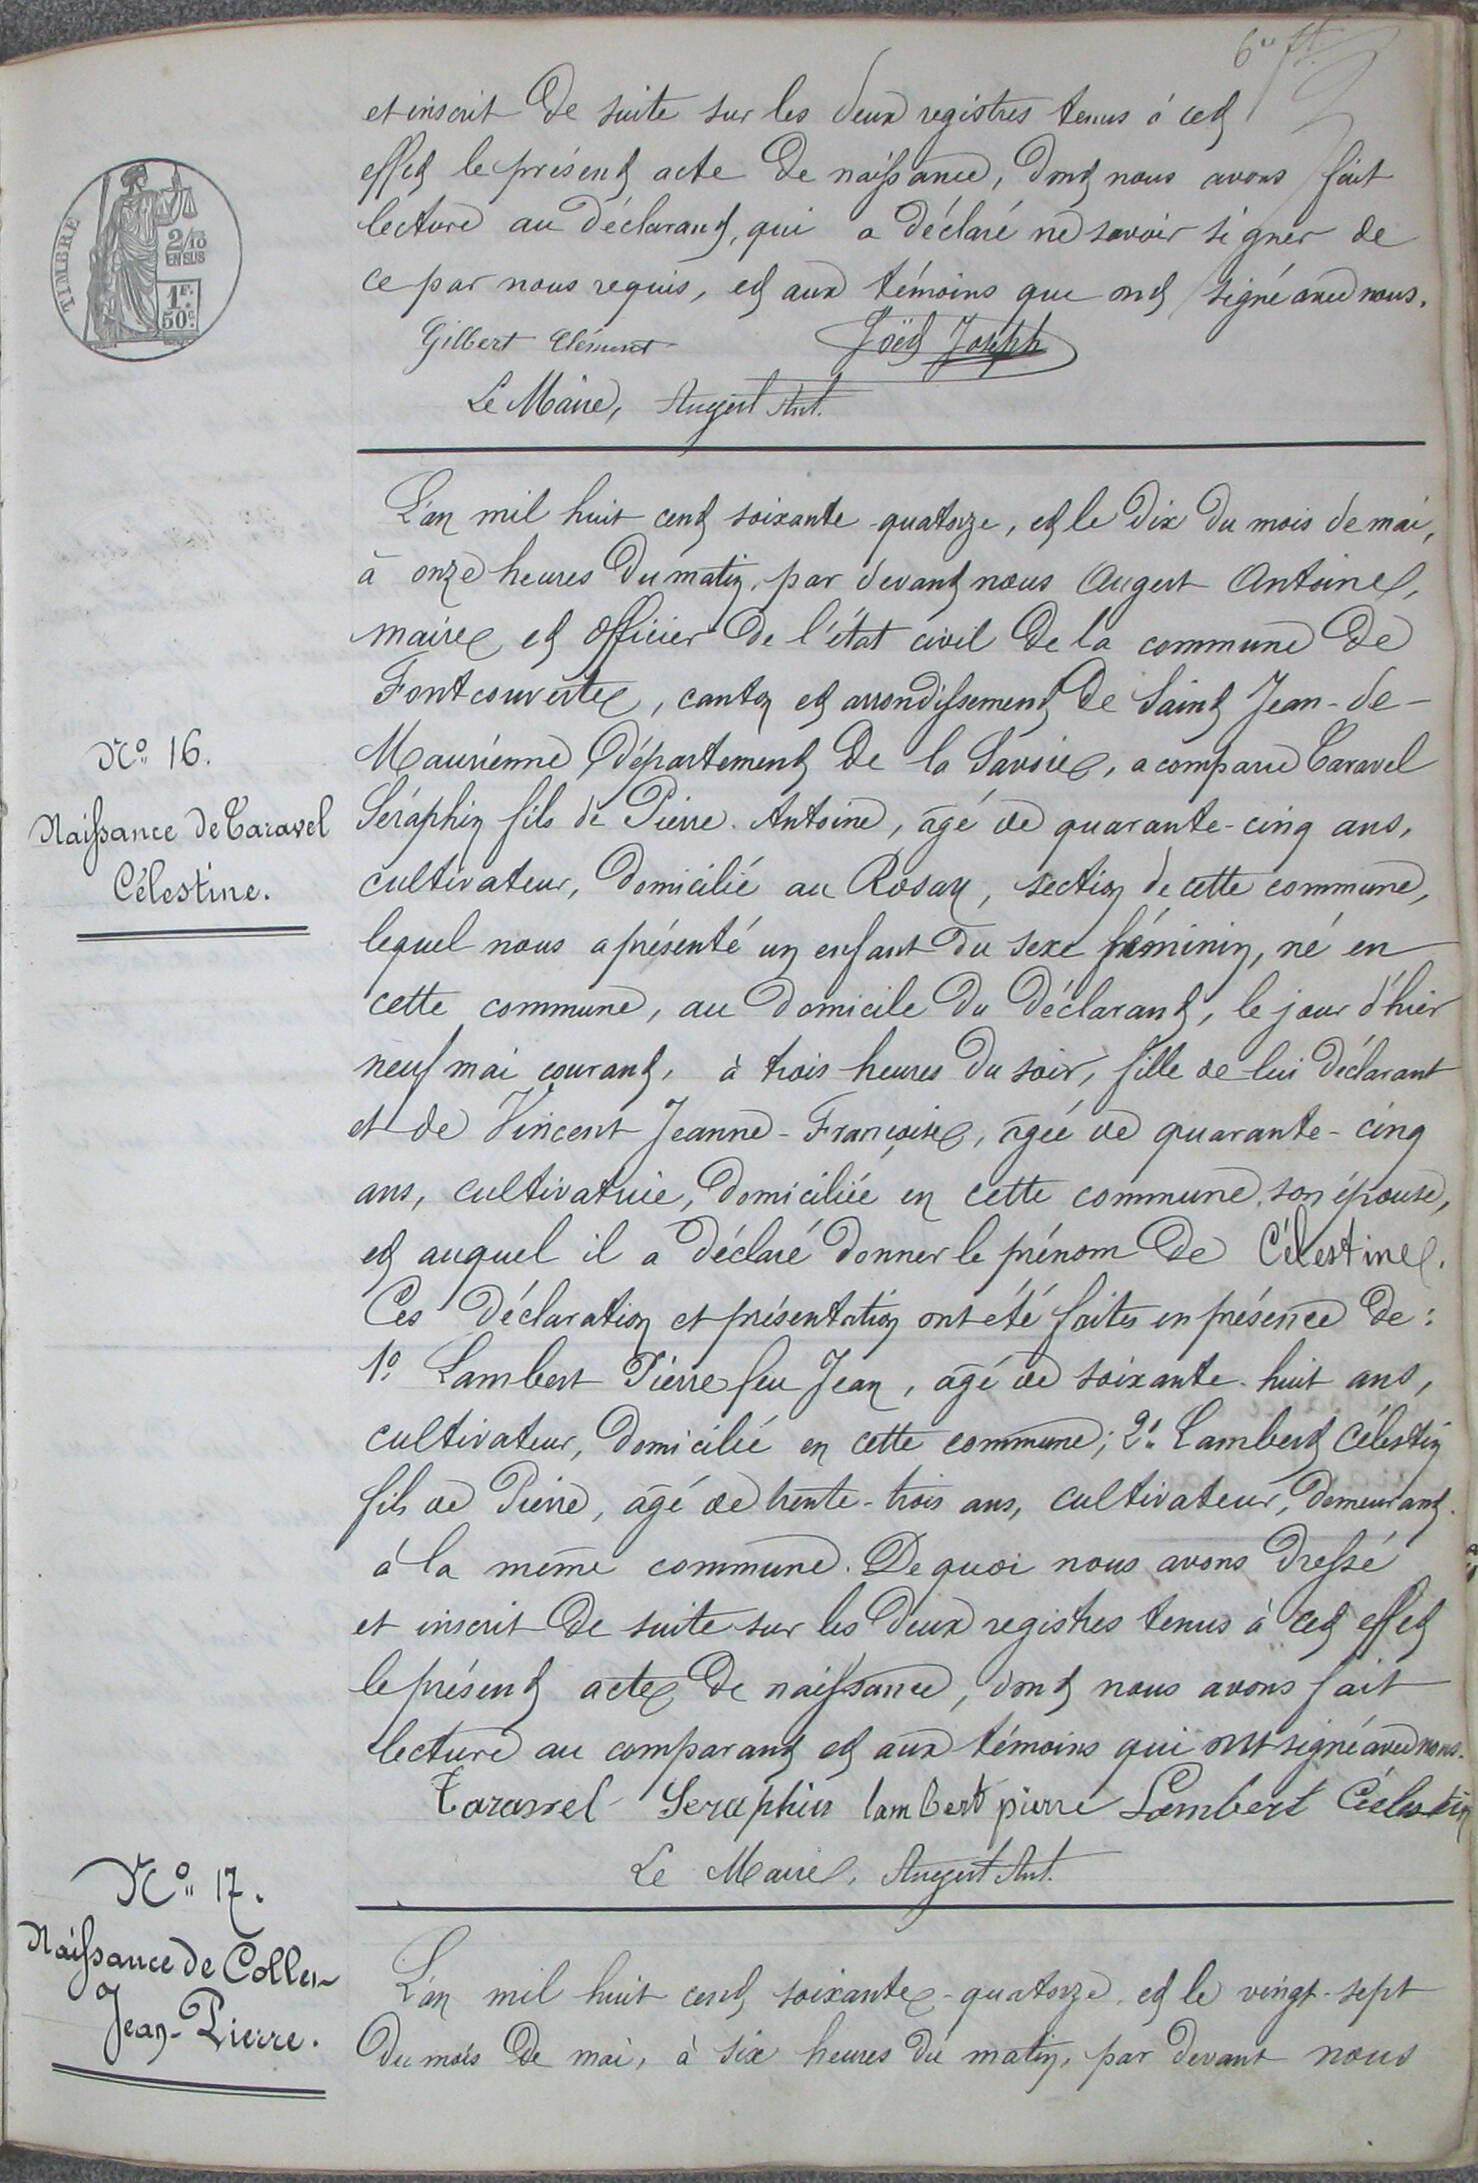 et inscrit de suite sur les deux registres tenus à cet
effet le présent acte de naissance, dont nous avons fait
lecture au déclarant, qui a déclaré ne savoir signer de
ce par nous requis, et aux témoins que ont signé avec nous.
TIMBRE
2/10
EN SUS
1F.
50c.
Gilbert Clément Joët Joseph
Le Maire, Augert Ant.
L'an mil huit cent soixante-quatorze, et le dix du mois de mai,
à onze heures du matin, par devant nous Augert Antoine,
maire et officier de l'état civil de la commune de
Fontcouverte, canton et arrondissement de Saint Jean-de-
Maurienne, département de la Savoie, a comparu Taravel
Séraphin fils de Pierre-Antoine, âgé de quarante-cinq ans,
cultivateur, domicilié au Rosay, section de cette commune,
lequel nous a présenté un enfant du sexe féminin, né en
cette commune, au domicile du déclarant, le jour d'hier
neuf mai courant, à trois heures du soir, fille de lui déclarant
et de Vincent Jeanne-Françoise, âgée de quarante-cinq
ans, cultivatrice, domiciliée en cette commune, son épouse,
et auquel il a déclaré donner le prénom de Célestine.
Ces déclaration et présentation ont été faites en présence de:
1o Lambert Pierre feu Jean, âgé de soixante-huit ans,
cultivateur, domicilié en cette commune; 2o Lambert Célestin
fils de Pierre, âgé de trente-trois ans, cultivateur, demeurant
à la même commune. De quoi nous avons dressé
et inscrit de suite sur les deux registres tenus à cet effet
le présent acte de naissance, dont nous avons fait
lecture au comparant et aux témoins qui ont signé avec nous.
Taravel Seraphin lambert pierre Lambert Célestin
Le Maire, Augert Ant.
No 16.
Naissance de Taravel
Célestine.
No 17.
Naissance de Collet
Jean-Pierre.
L'an mil huit cent soixante-quatorze et le vingt-sept
du mois de mai, à six heures du matin, par devant nous